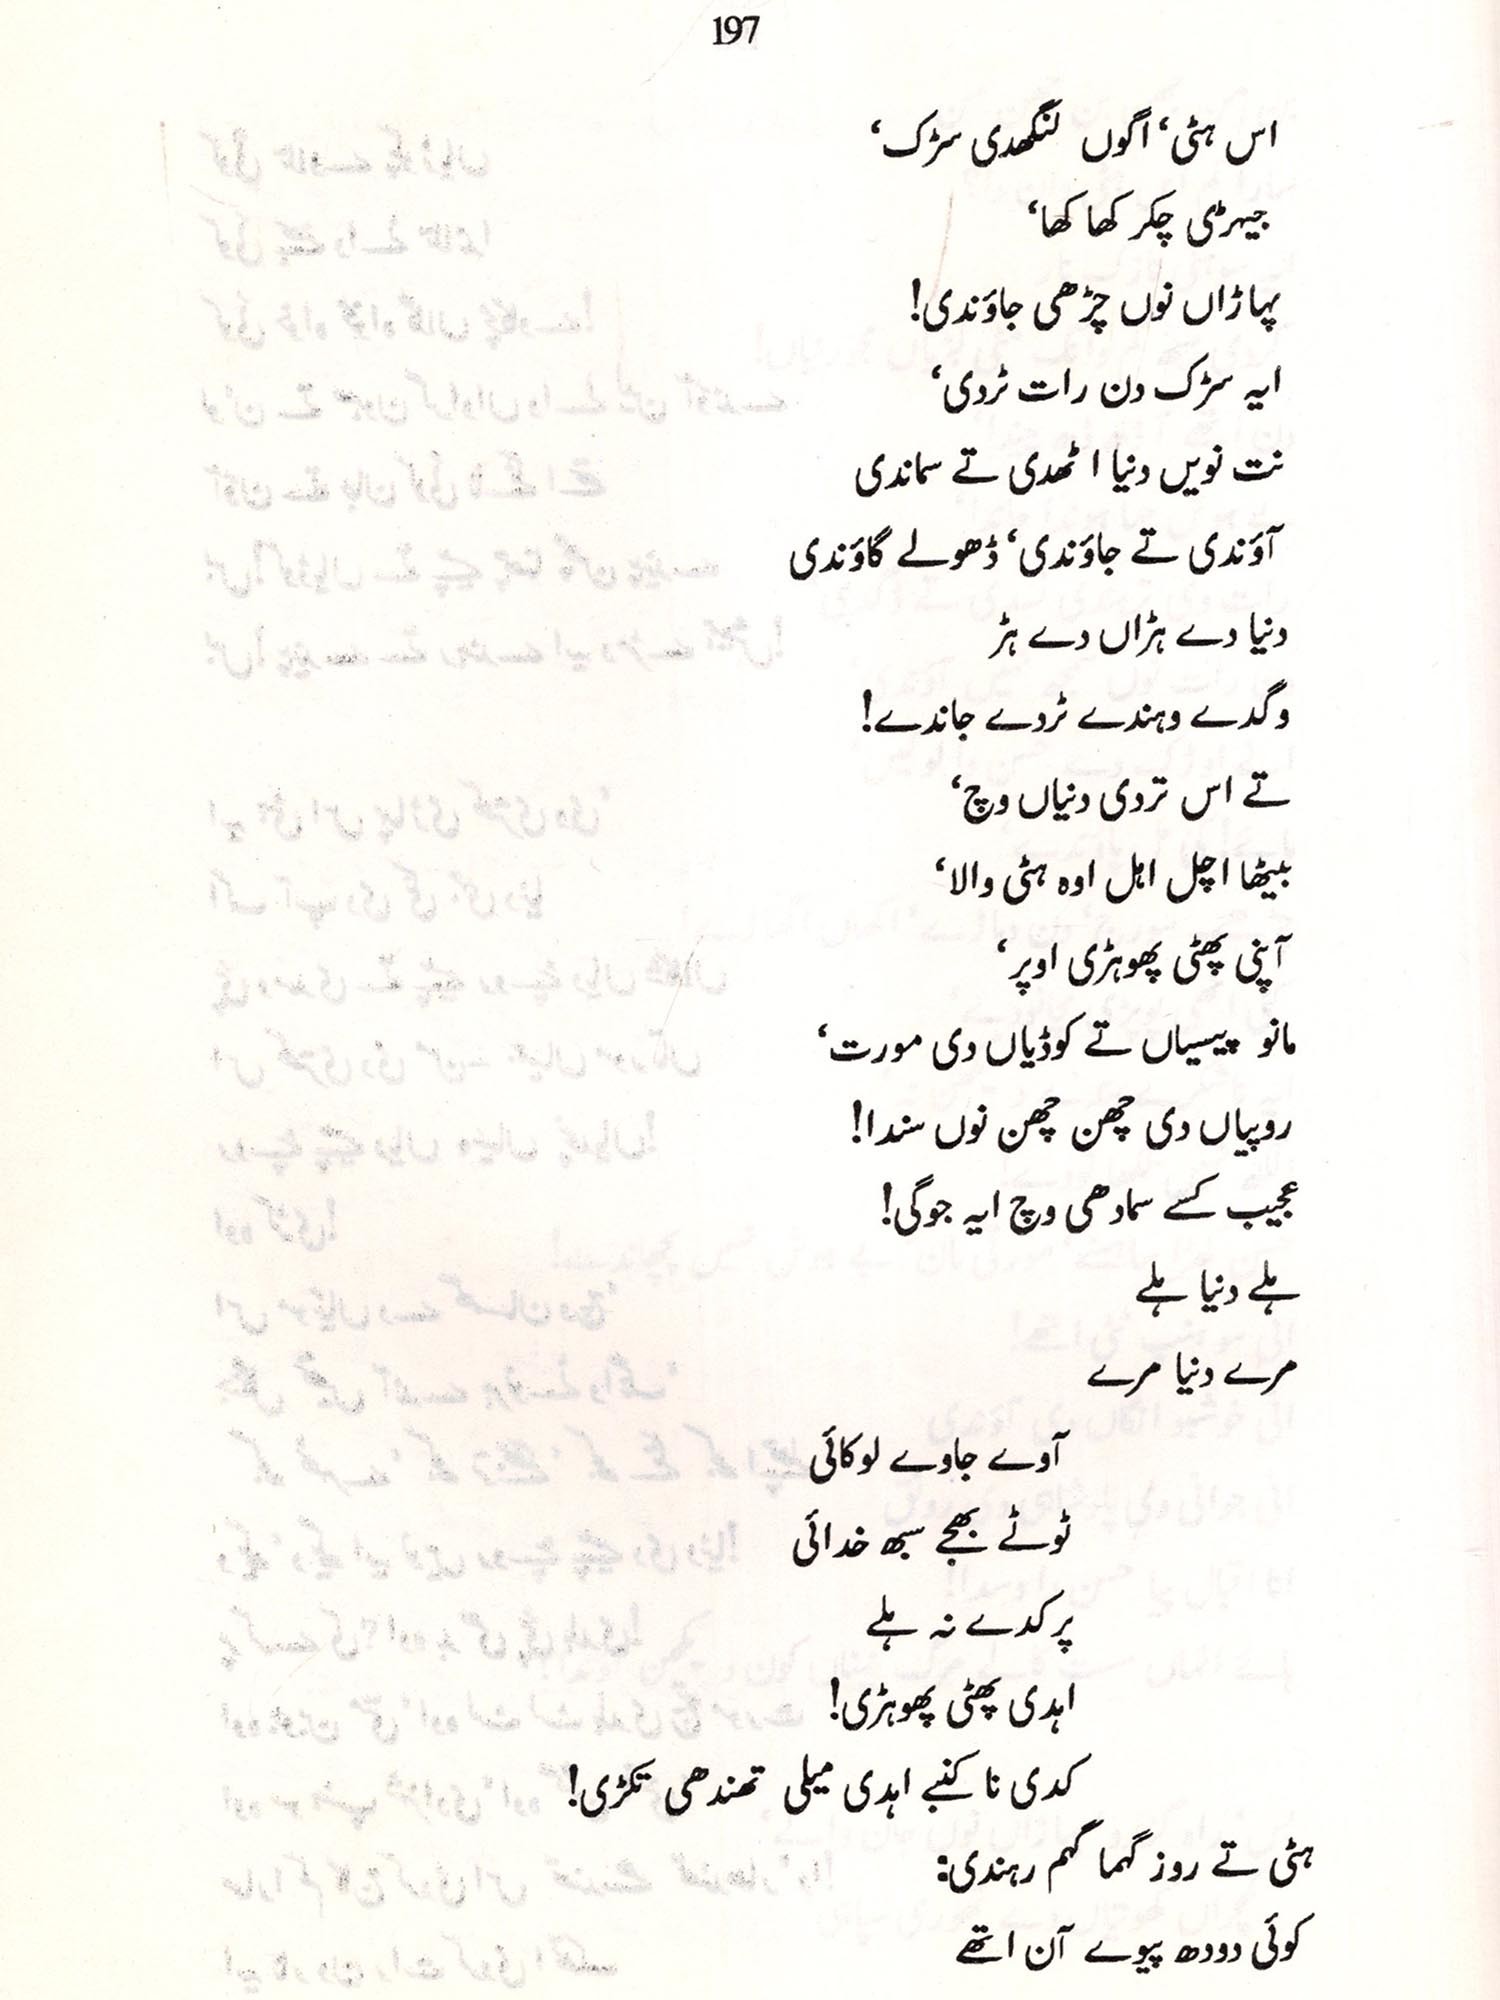 197
اس ہٹی‘ اگوں لنگھدی سڑک‘
جیہڑی چکر کھا کھا‘
پہاڑاں نوں چڑھی جاؤندی!
ایہ سڑک دن رات ٹردی‘
نت نویں دنیا اٹھدی تے سماندی
آؤندی تے جاؤندی‘ ڈھولے گاؤندی
دنیا دے ہڑاں دے ہڑ
وگدے وہندے ٹردے جاندے!
تے اس تردی دنیاں وچ‘
بیٹھا اچل اہل اوہ ہٹی والا‘
آپنی پھٹی پھوہڑی اوپر‘
مانو پیسیاں تے کوڈیاں دی مورت‘
روپیاں دی چھن چھن نوں سندا!
عجیب کسے سمادھی وچ ایہ جوگی!
ہلے دنیا ہلے
مرے دنیا مرے
آوے جاوے لوکائی
ٹوٹے بھجے سبھ خدائی
پر کدے نہ ہلے
اہدی پھٹی پھوہڑی!
کدی نا کنبے اہدی میلی تھندھی تکڑی!
ہٹی تے روز گہما گہم رہندی:
کوئی دودھ پیوے آن اتھے